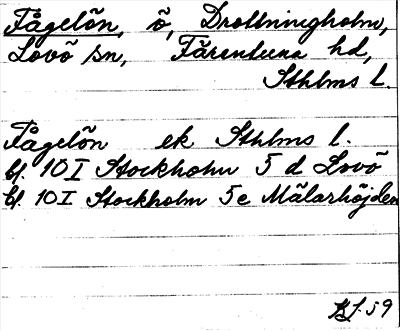 Fågelön, ö, Drottningholm,
Lovö sn, Färentuna hd,
Sthlms l.
Fågelön ek Sthlms l.
bl. 10 I Stockholm 5 d Lovö
bl. 10 I Stockholm 5 e Mälarhöjden
59